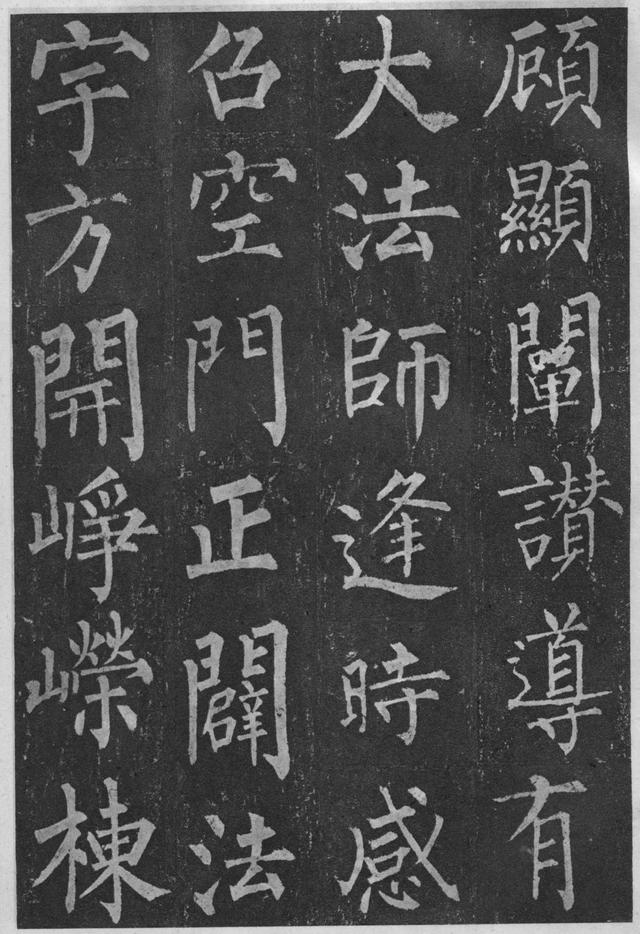 顧顯闡讃導有
大法師逢時感
召空門正闢法
宇方開崢嶸棟